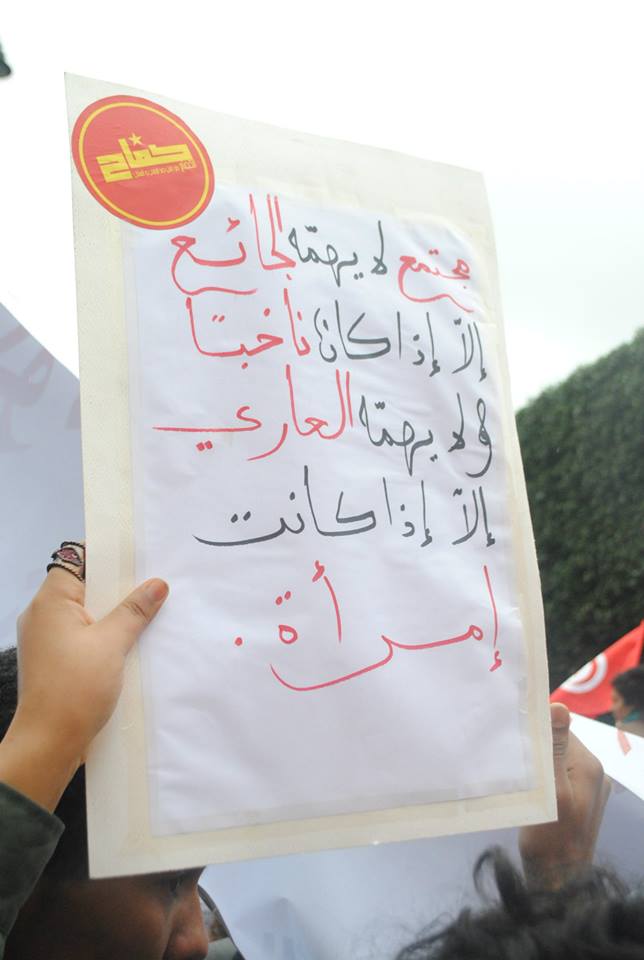 كفاح
مجتمع لا يهمّه الجائع
إلاّ إذا كان ناخبًا
و لا يهمّه العاري
إلاّ إذا كانت
إمرأة.